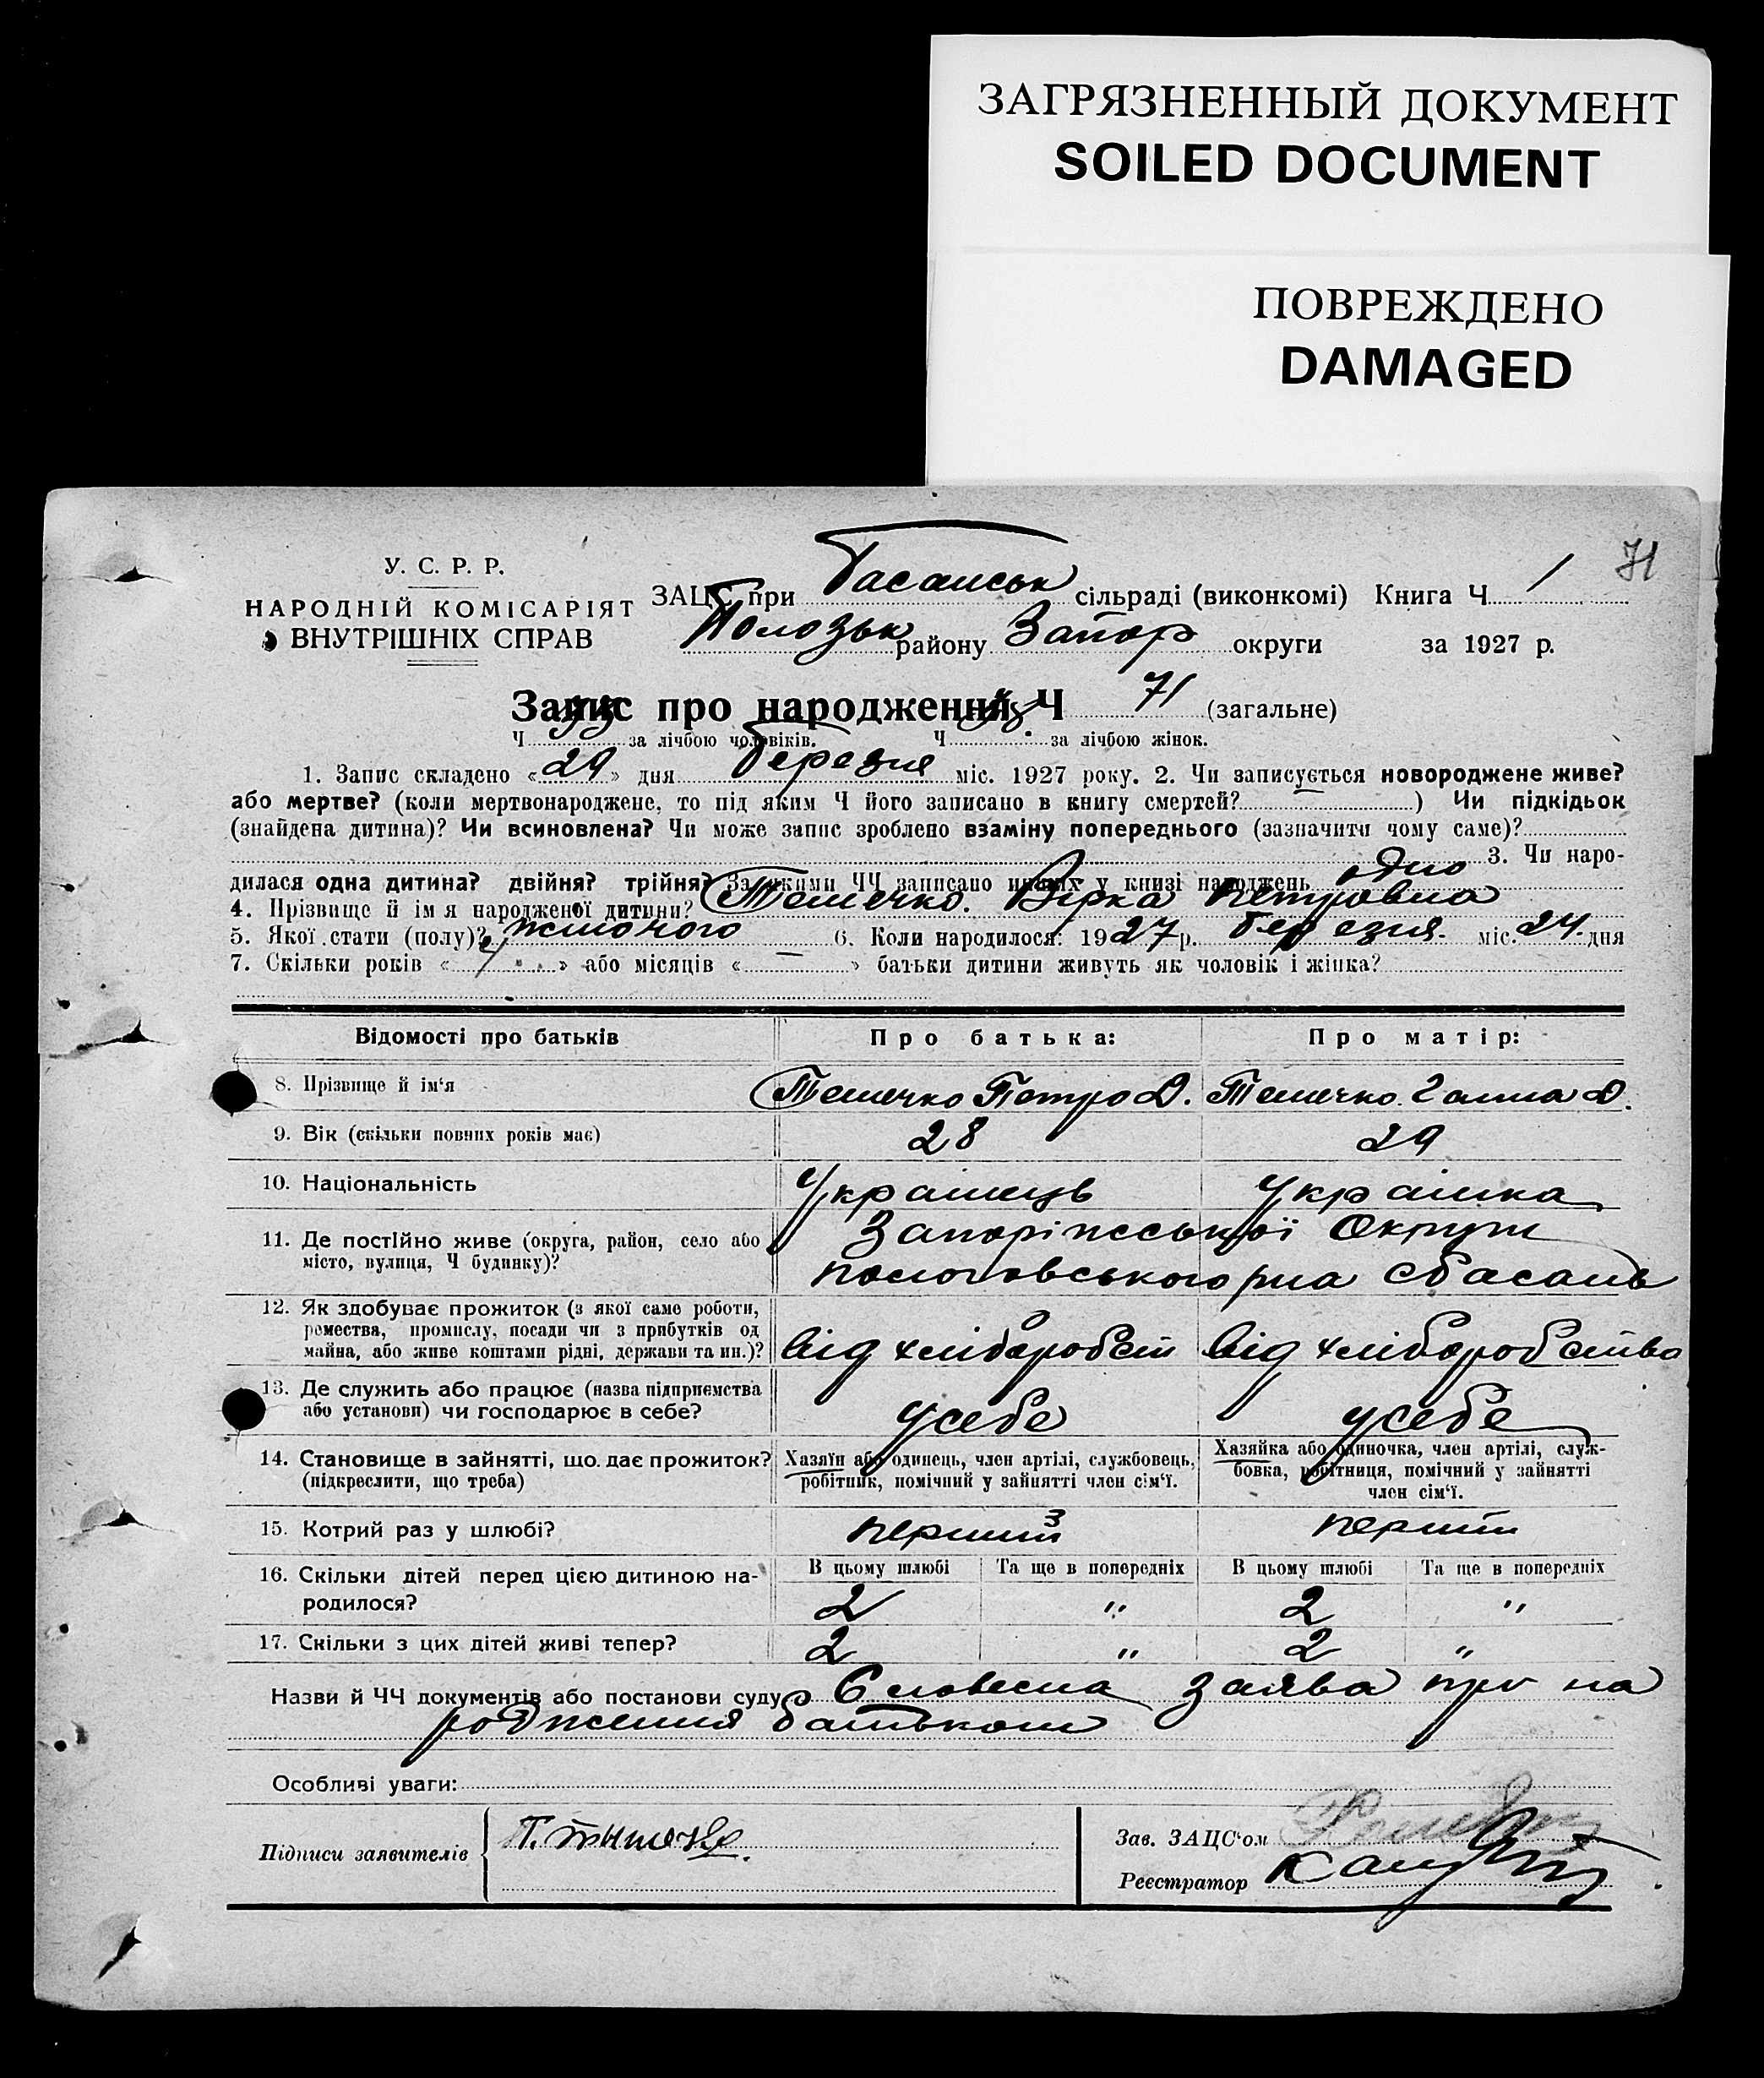 ЗАГРЯЗНЕННЫЙ ДОКУМЕНТ
SOILED DOCUMENT
ПОВРЕЖДЕНО
DAMAGED
71
У. С. Р. Р.
НАРОДНІЙ КОМІСАРІЯТ
ВНУТРІШНІХ СПРАВ
ЗАЦС при Басанськ сільраді (виконкомі) Книга Ч 1
Пологськ району Запор округи за 1927 р.
Запис про народження Ч 71 (загальне)
Ч за лічбою чоловіків. Ч за лічбою жінок.
1. Запис складено «29» дня березня міс. 1927 року. 2. Чи записується новороджене живе?
або мертве? (коли мертвонароджене, то під яким Ч його записано в книгу смертей? ) Чи підкідьок
(знайдена дитина)? Чи всиновлена? Чи може запис зроблено взаміну попереднього (зазначити чому саме)?
3. Чи наро-
дилася одна дитина? двійня? трійня? За якими ЧЧ записано инших у книзі народжень одно
4. Прізвище й ім'я народженої дитини? Темечко Вірка Петровна
5. Якої стати (полу)? жіночого 6. Коли народилося: 1927 р. березня міс. 24 дня
7. Скільки років « » або місяців « — » батьки дитини живуть як чоловік і жінка?
Відомості про батьків Про батька: Про матір:
8. Прізвище й ім'я Темечко Петро Д. Темечко Ганна Д.
9. Вік (скільки повних років має) 28 29
10. Національність Українець Українка
11. Де постійно живе (округа, район, село або
місто, вулиця, Ч будинку)?
Запоріжської Округи
пологовського рна с басань
12. Як здобуває прожиток (з якої саме роботи,
ремества, промислу, посади чи з прибутків од
майна, або живе коштами рідні, держави та ин.)?
від хліборобст від хліборобства
13. Де служить або працює (назва підприємства
або установи) чи господарює в себе?
усебе усебе
14. Становище в зайнятті, що дає прожиток?
(підкреслити, що треба)
Хазяїн або одинець, член артілі, службовець,
робітник, помічний у зайнятті член сім'ї.
Хазяйка або одиночка, член артілі, служ-
бовка, робітниця, помічний у зайнятті
член сім'ї.
15. Котрий раз у шлюбі? перший перший
16. Скільки дітей перед цією дитиною на-
родилося?
В цьому шлюбі Та ще в попередніх В цьому шлюбі Та ще в попередніх
2 " 2 "
17. Скільки з цих дітей живі тепер? 2 " 2 "
Назви й ЧЧ документів або постанови суду Словесна заява про на
родження батьком
Особливі уваги:
Підписи заявителів
Зав. ЗАЦС'ом
Реєстратор